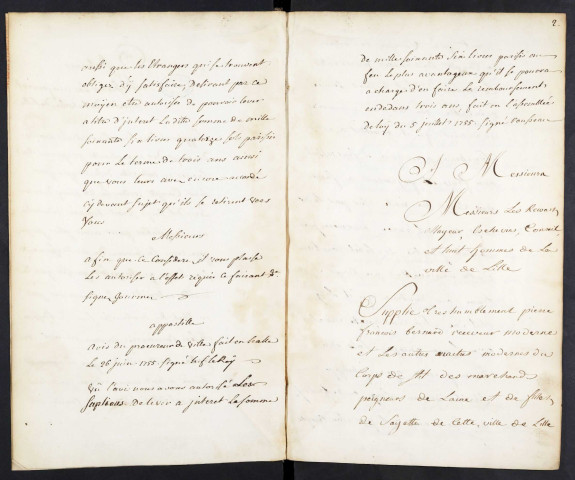 aussi que les Etrangers qui se trouvent
obligez d'y satisfaire, desirant par ce
moyen etre autorisez de pouvoir lever
a titre d'interet la ditte somme de mille
soixante six livres quatorze sols parisis
pour le terme de trois ans aussi
que vous leurs avez encore accordé
cy devant sujet qu'ils se retirent vers
Vous
Messieurs
afin que ce Consideré, et vous plaise
les autoriser a l'effet requis ce faisant &c
signé
appostille
avis du procureur de ville fait en halle
le 26 juin 1755 signé le Roy
Vû l'avis nous avons autorisé les
suplians de lever a interet la somme
2.
de mille soixante six livres parisis en
feu le plus avantageux qu'il se pourra
a charge d'en faire le remboursement
endedans trois ans, fait en l'assemblée
de loy du 5 juillet 1755. signé
A Messieurs
Messieurs Les Rewart,
Mayeur, Eschevins, Conseil
et huit hommes de La
ville de Lille
Supplie tres humblement, pierre
francois bernard receveur moderne
et les autres maitres modernes du
Corps de stil des marchands
peigneurs de Laine et de filets
de Sayette de cette ville de Lille